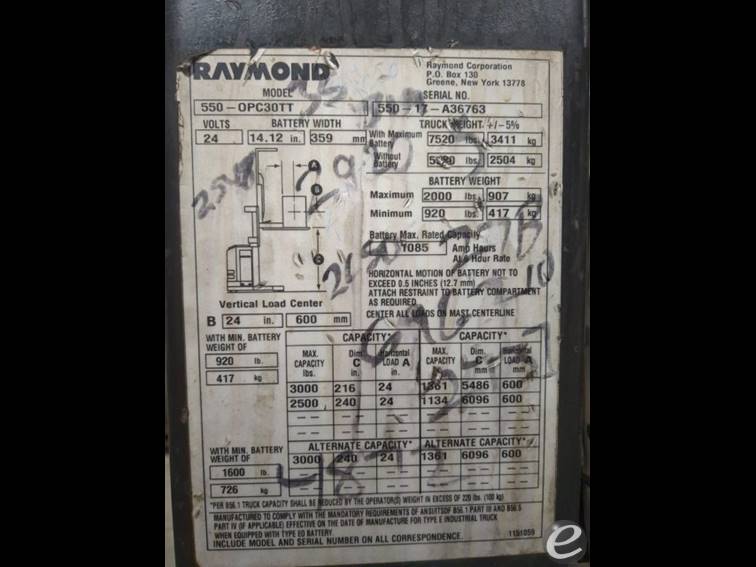 RAYMOND
Raymond Corporation
P.O. Box 130
Greene, New York 13778
MODEL
SERIAL NO.
550-OPC30TT
550-17-A36763
VOLTS BATTERY WIDTH
TRUCK WEIGHT +/-5%
24 14.12 in. 359 mm
With Maximum Battery 7520 lbs. 3411 kg
Without Battery lbs. 2504 kg
BATTERY WEIGHT
Maximum 2000 lbs. 907 kg
Minimum 920 lbs. 417 kg
Battery Max. Rated Capacity
1085 Amp Hours
At 6 Hour Rate
HORIZONTAL MOTION OF BATTERY NOT TO
EXCEED 0.5 INCHES (12.7 mm)
ATTACH RESTRAINT TO BATTERY COMPARTMENT
AS REQUIRED
CENTER ALL LOADS ON MAST CENTERLINE
A
B
C
Vertical Load Center
B 24 in. 600 mm
WITH MIN. BATTERY
WEIGHT OF
920 lb.
417 kg
CAPACITY* CAPACITY*
MAX. CAPACITY lbs. Dim. C in. Horizontal LOAD A in. MAX. CAPACITY kg Dim. C mm Horizontal LOAD A mm
3000 216 24 1361 5486 600
2500 240 24 1134 6096 600
ALTERNATE CAPACITY* ALTERNATE CAPACITY*
WITH MIN. BATTERY
WEIGHT OF
1600 lb.
726 kg
3000 240 24 1361 6096 600
*PER B56.1 TRUCK CAPACITY SHALL BE REDUCED BY THE OPERATOR(S) WEIGHT IN EXCESS OF 220 lbs. (100 kg)
MANUFACTURED TO COMPLY WITH THE MANDATORY REQUIREMENTS OF ANSI/ITSDF B56.1 PART III AND B56.5
PART IV (IF APPLICABLE) EFFECTIVE ON THE DATE OF MANUFACTURE FOR TYPE E INDUSTRIAL TRUCK
WHEN EQUIPPED WITH TYPE EO BATTERY.
INCLUDE MODEL AND SERIAL NUMBER ON ALL CORRESPONDENCE.
1151059
e